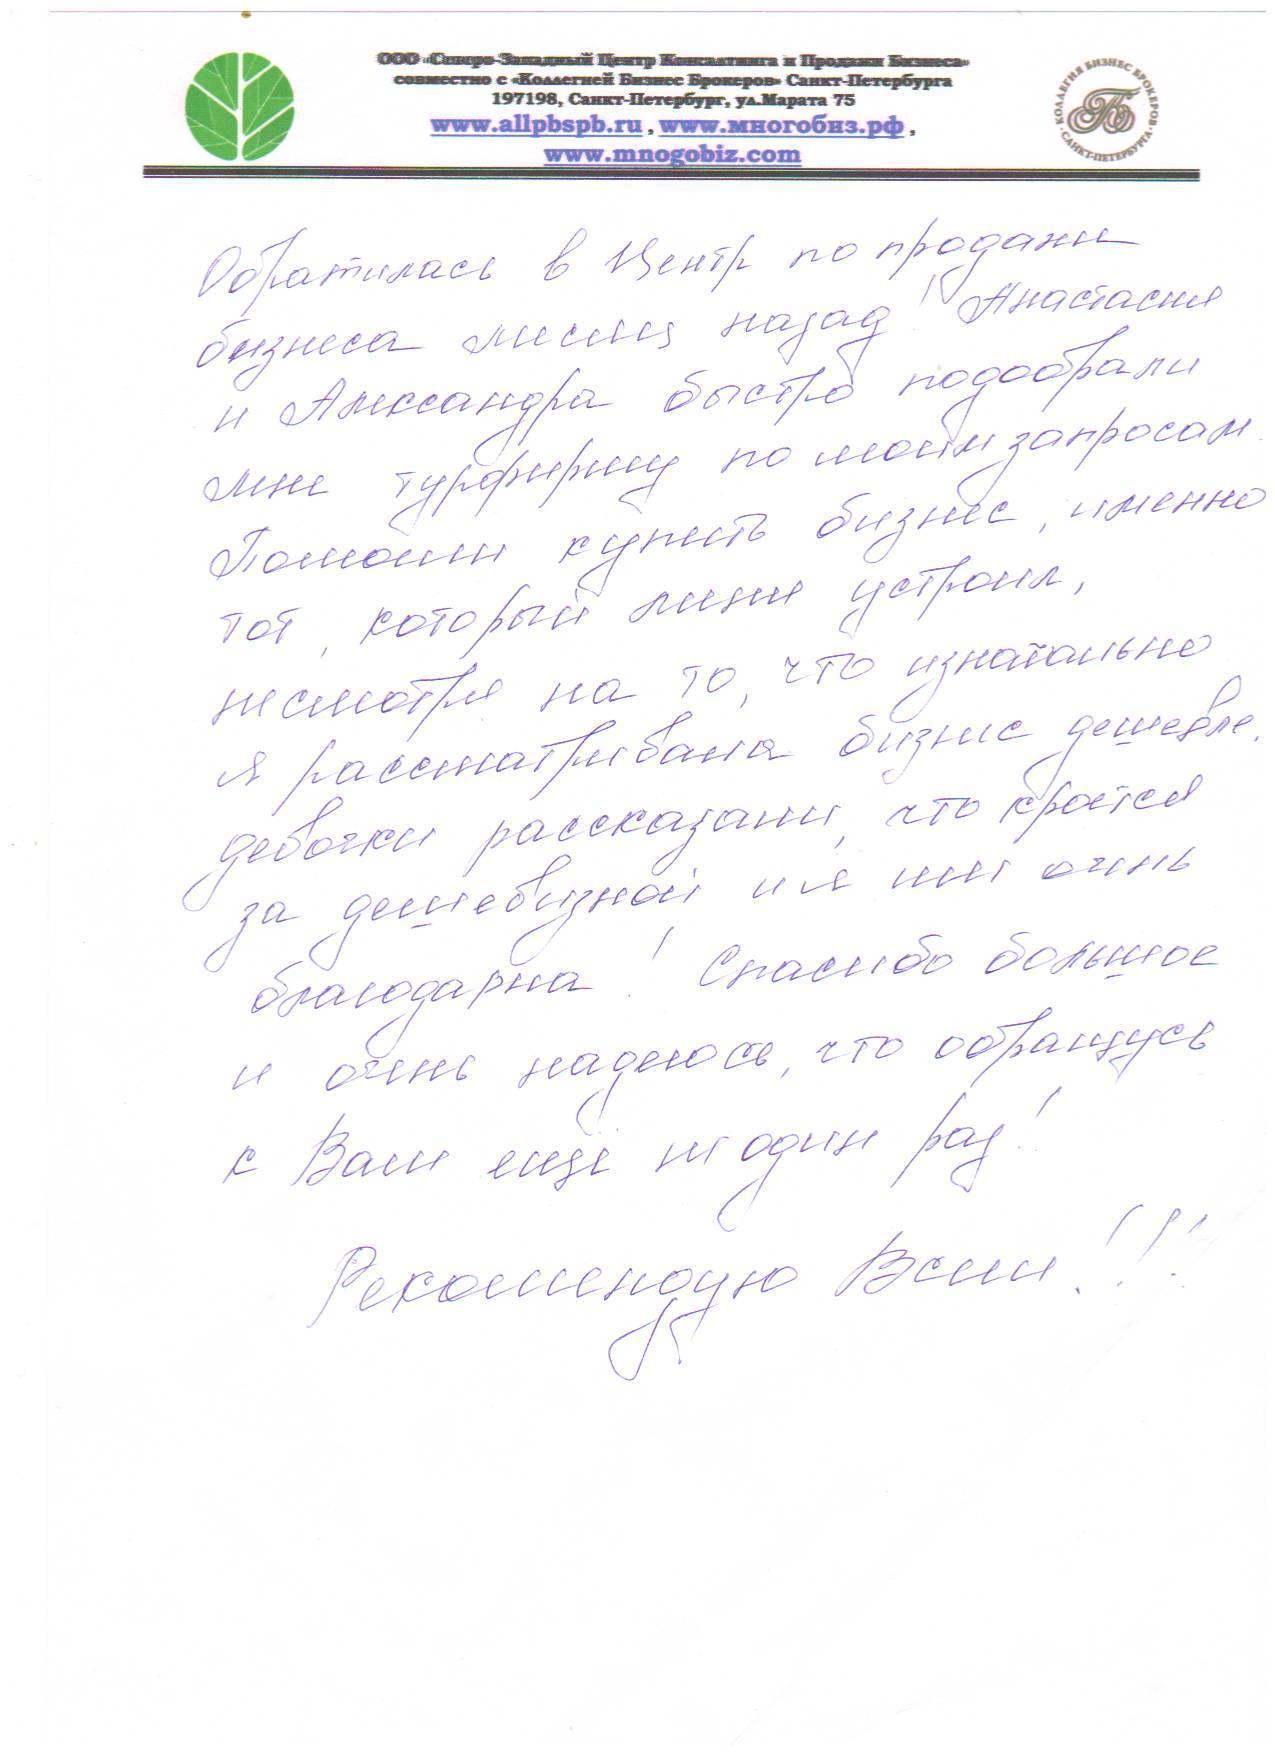 ООО «Северо-Западный Центр Консалтинга и Продажи Бизнеса»
совместно с «Коллегией Бизнес Брокеров» Санкт-Петербурга
197198, Санкт-Петербург, ул.Марата 75
www.allpbspb.ru , www.многобиз.рф ,
www.mnogobiz.com
КОЛЛЕГИЯ БИЗНЕС БРОКЕРОВ
САНКТ-ПЕТЕРБУРГА
Обратилась в Центр по продажи
бизнеса месяц назад! Анастасия
и Александра быстро подобрали
мне турфирму по моим запросам.
Помогли купить бизнес, именно
тот, который меня устроил,
несмотря на то, что изначально
я рассматривала бизнес дешевле.
девочки рассказали, что кроется
за дешевизной и я им очень
благодарна! Спасибо большое
и очень надеюсь, что обращусь
к Вам ещё не один раз!
Рекомендую Всем!!!